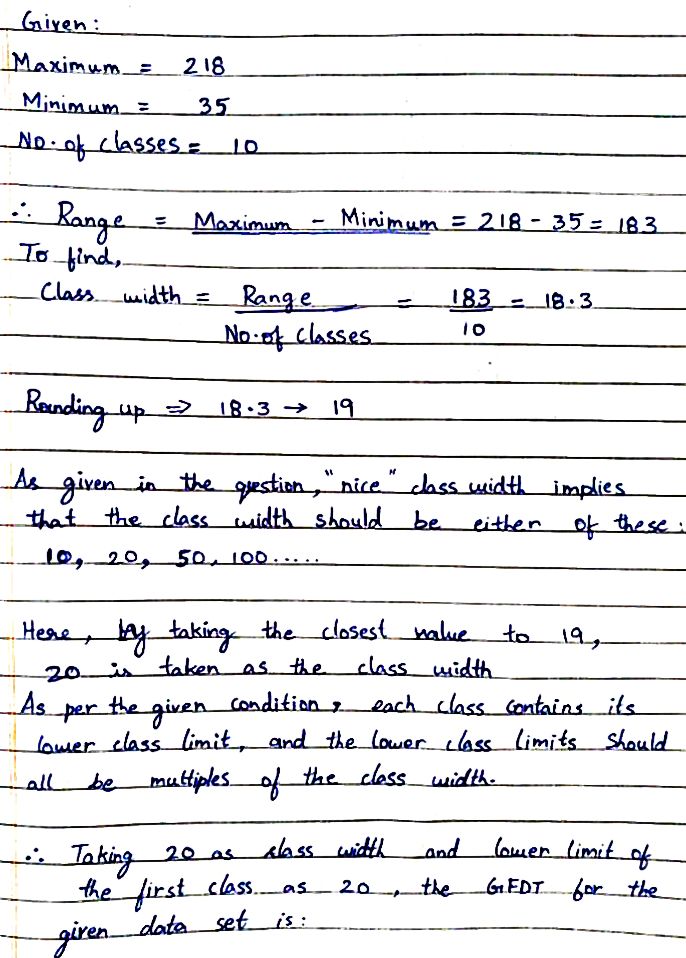 Given:
Maximum = 218
Minimum = 35
No. of classes = 10
∴ Range = Maximum - Minimum = 218 - 35 = 183
To find,
Class width = Range / No. of Classes = 183 / 10 = 18.3
Rounding up ⇒ 18.3 → 19
As given in the question, "nice" class width implies
that the class width should be either of these:
10, 20, 50, 100.....
Here, by taking the closest value to 19,
20 is taken as the class width
As per the given condition, each class contains its
lower class limit, and the lower class limits should
all be multiples of the class width.
∴ Taking 20 as class width and lower limit of
the first class as 20, the GFDT for the
given data set is: